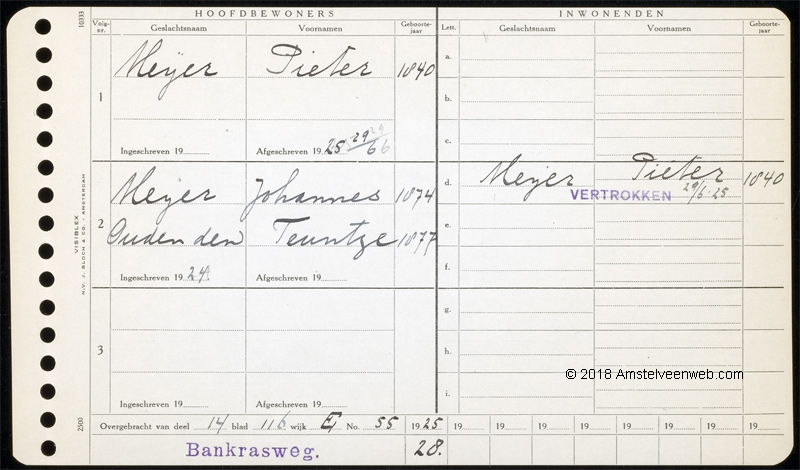 HOOFDBEWONERS
Volg-nr. Geslachtsnaam Voornamen Geboorte-jaar
1 Meijer Pieter 1840
Ingeschreven 19 Afgeschreven 19 25 29/6
2 Meijer Johannes 1874
Ouden den Teuntje 1877
Ingeschreven 19 24 Afgeschreven 19
3
Ingeschreven 19 Afgeschreven 19
INWONENDEN
Lett. Geslachtsnaam Voornamen Geboorte-jaar
a.
b.
c.
d. Meijer Pieter 1840
VERTROKKEN 29/6-25
e.
f.
g.
h.
i.
Overgebracht van deel 14 blad 116 wijk E, No. 55 1925 19 19 19 19 19 19 19 19
Bankrasweg. 28.
10333
VISIBLEX
N.V. J. BLOCH & CO. - AMSTERDAM
2500
© 2018 Amstelveenweb.com